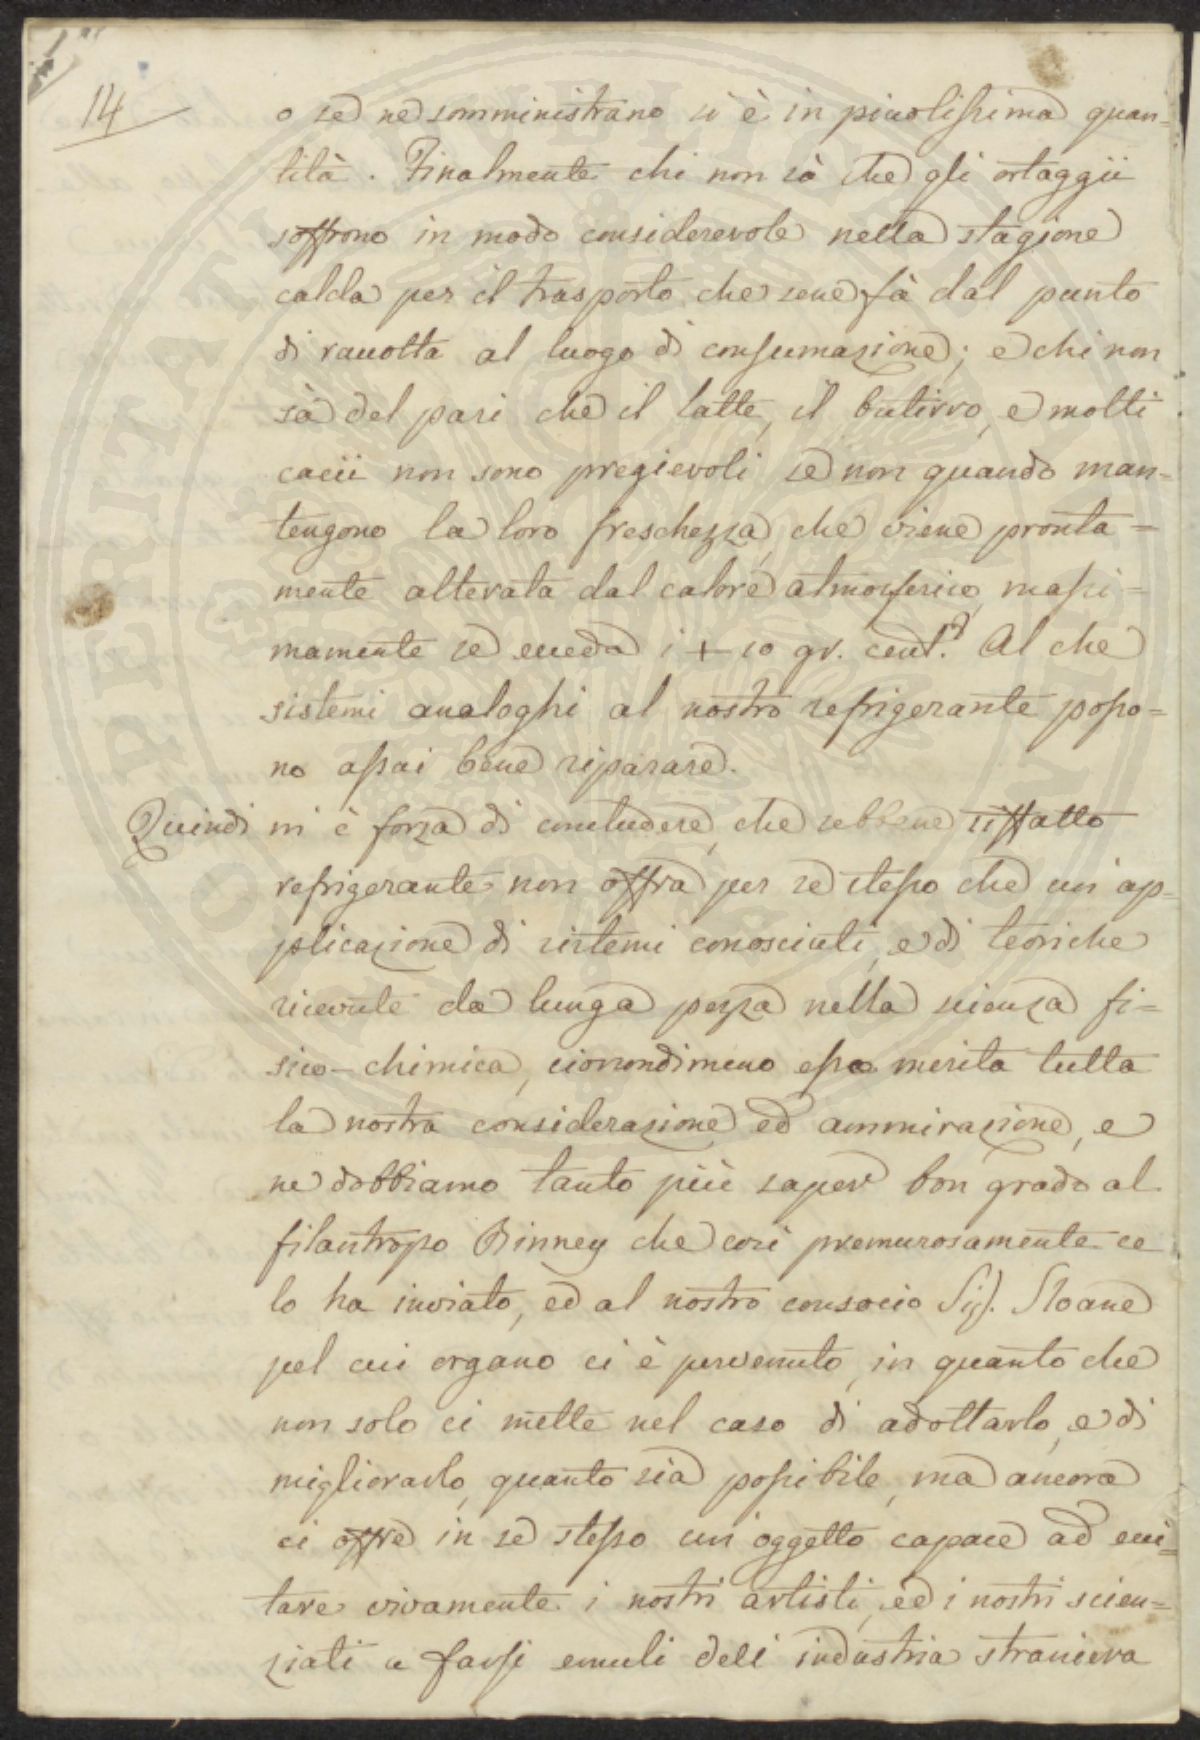 14
o se ne somministrano si è in piccolissima quan-
tità. Finalmente chi non sà che gli ortaggii
soffrono in modo considerevole nella stagione
calda per il trasporto che sene fà dal punto
di raccolta al luogo di consumazione; e chi non
sà del pari che il latte, il butirro, e molti
cacii non sono pregievoli se non quando man=
tengono la loro freschezza, che viene pronta=
mente alterata dal calore atmosferico, massi=
mamente seecceda i + 10 gr. cent.? Al che
sistemi analoghi al nostro refrigerante posso=
no assai bene riparare.
Quindi mi è forza di concludere, che sebbene siffatto
refrigerante non offra per se stesso che un'ap-
plicazione di sistemi conosciuti, e di teoriche
ricevute da lunga pezza nella scienza fi=
sico-chimica, cionondimeno esso merita tutta
la nostra considerazione ed ammirazione, e
ne dobbiamo tanto più saper bon grado al
filantropo Binney che così premurosamente ce
lo ha inviato, ed al nostro consocio Sig. Sloane
pel cui organo ci è pervenuto, in quanto che
non solo ci mette nel caso di adottarlo, e di
migliorarlo, quanto sia possibile, ma ancora
ci offre in se stesso un'oggetto capace ad ecci=
tare vivamente i nostri artisti, ed i nostri scien=
ziati a farsi emuli dell'industria straniera